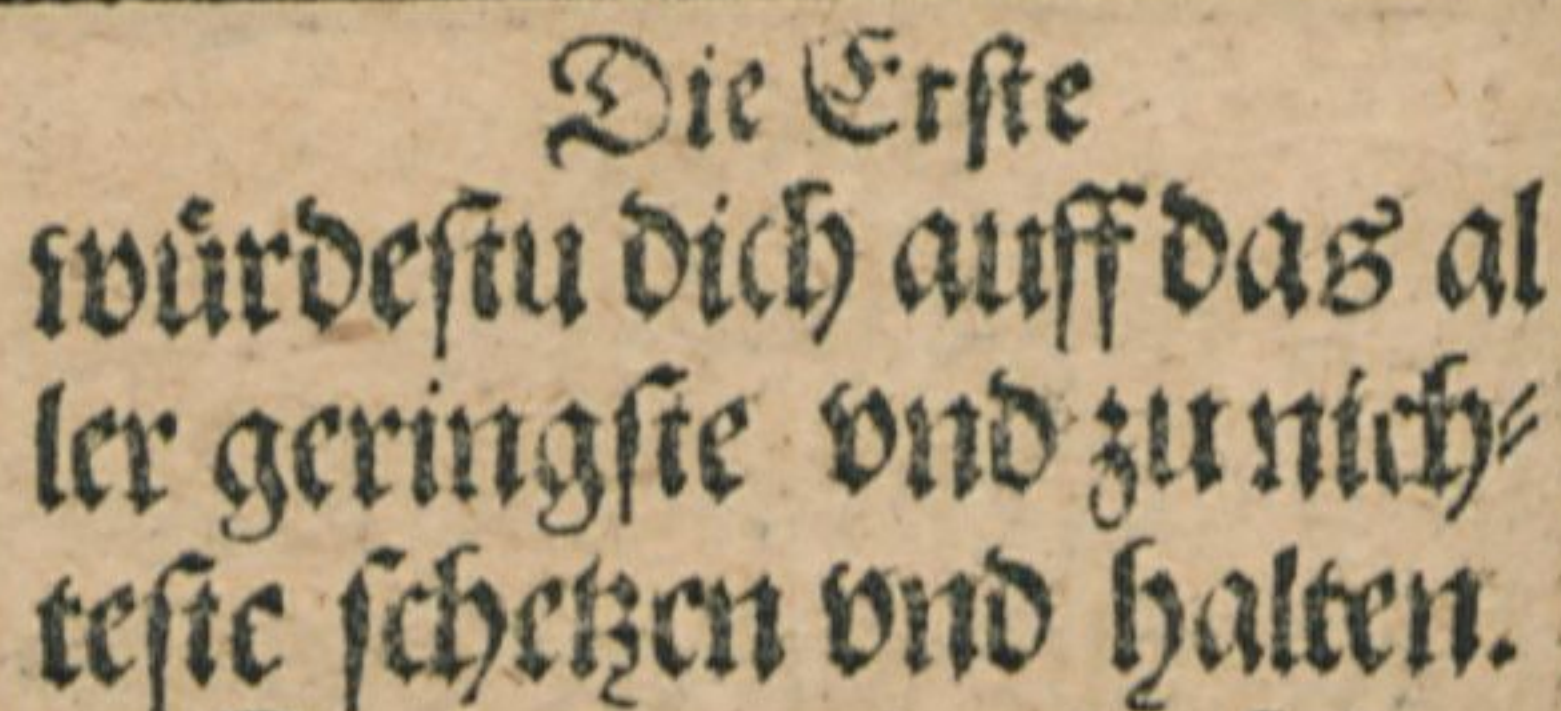 Die Erſte
wuͤrdeſtu dich auff das al
ler geringſte vnd zu nich⸗
teſte ſchetzen vnd halten.